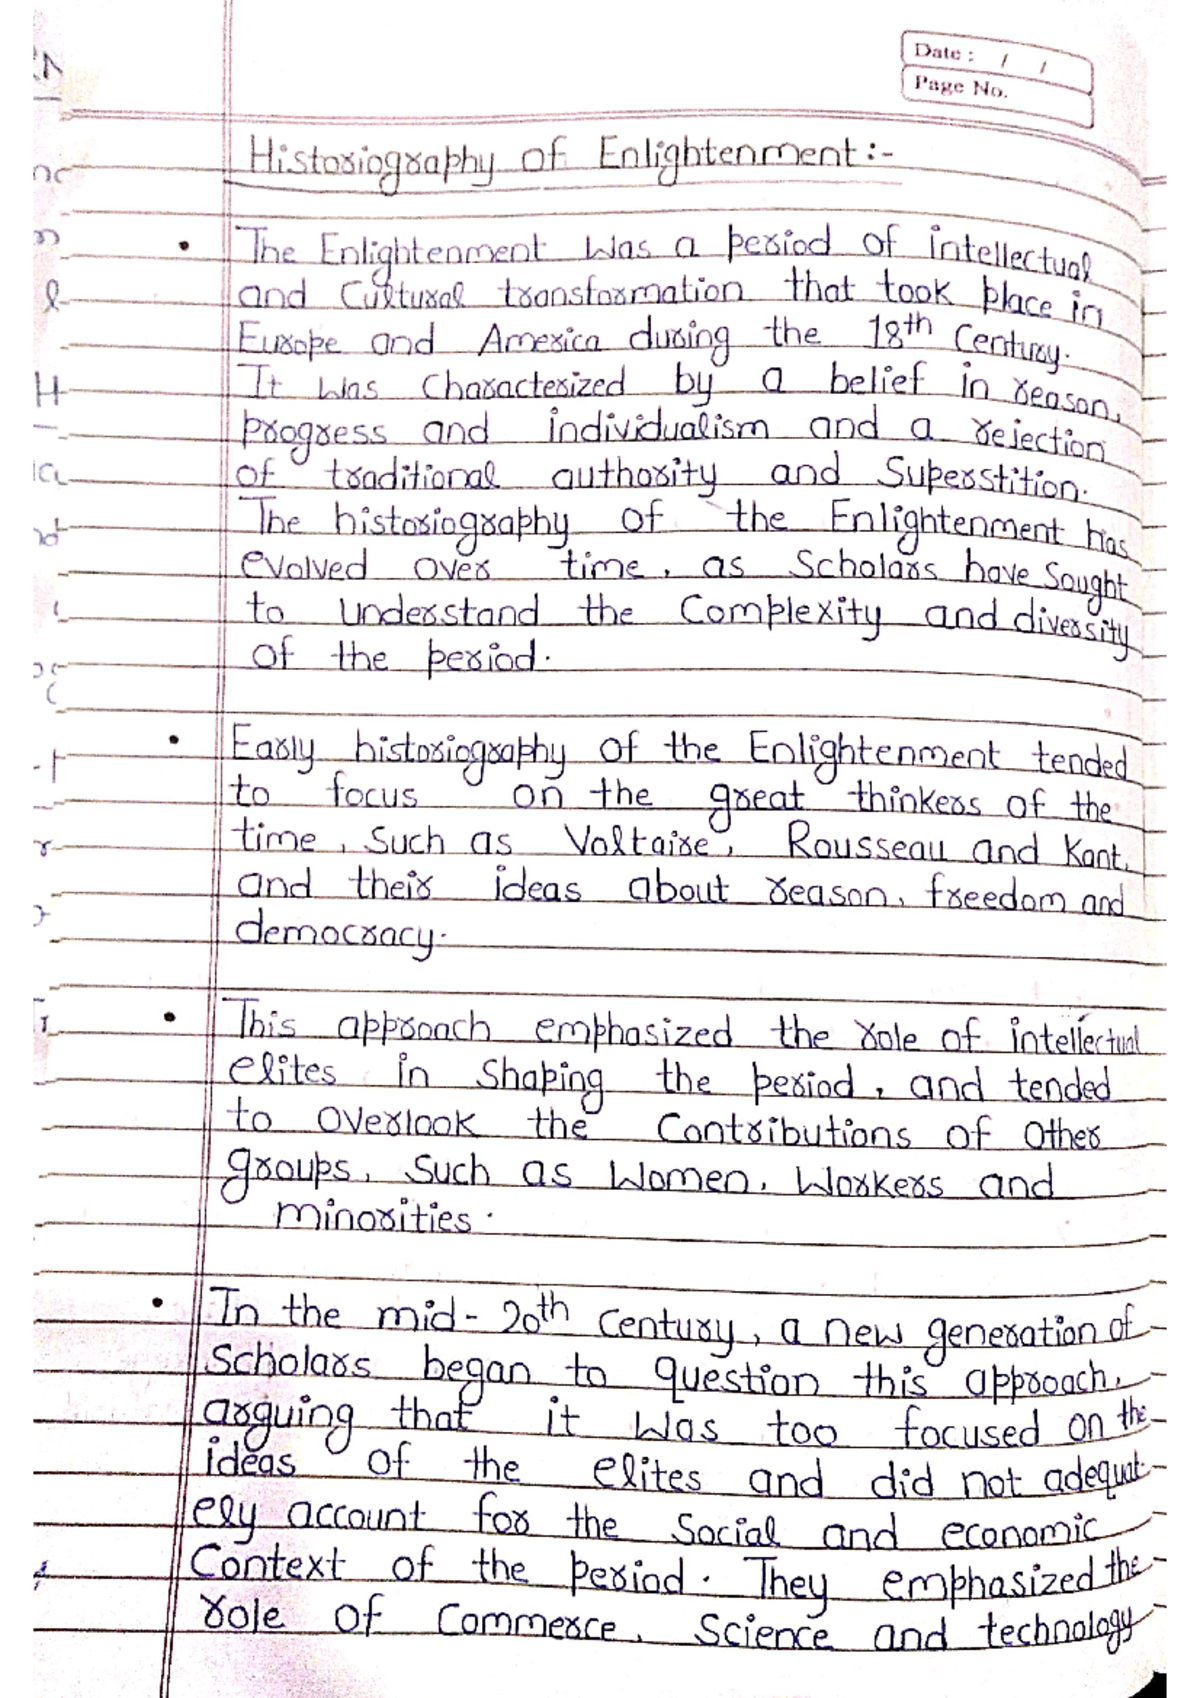 Date : / /
Page No.
Historiography of Enlightenment:-
• The Enlightenment was a period of intellectual
and Cultural transformation that took place in
Europe and America during the 18th Century.
It was Characterized by a belief in reason,
progress and individualism and a rejection
of traditional authority and Superstition.
The historiography of the Enlightenment has
evolved over time, as Scholars have Sought
to understand the Complexity and diversity
of the period.
• Early historiography of the Enlightenment tended
to focus on the great thinkers of the
time, Such as Voltaire, Rousseau and Kant,
and their ideas about reason, freedom and
democracy.
• This approach emphasized the role of intellectual
elites in Shaping the period, and tended
to overlook the Contributions of Other
groups, Such as Women, Workers and
minorities.
• In the mid-20th Century, a new generation of
Scholars began to question this approach,
arguing that it was too focused on the
ideas of the elites and did not adequat-
ely account for the Social and economic
Context of the period. They emphasized the
role of Commerce, Science and technology